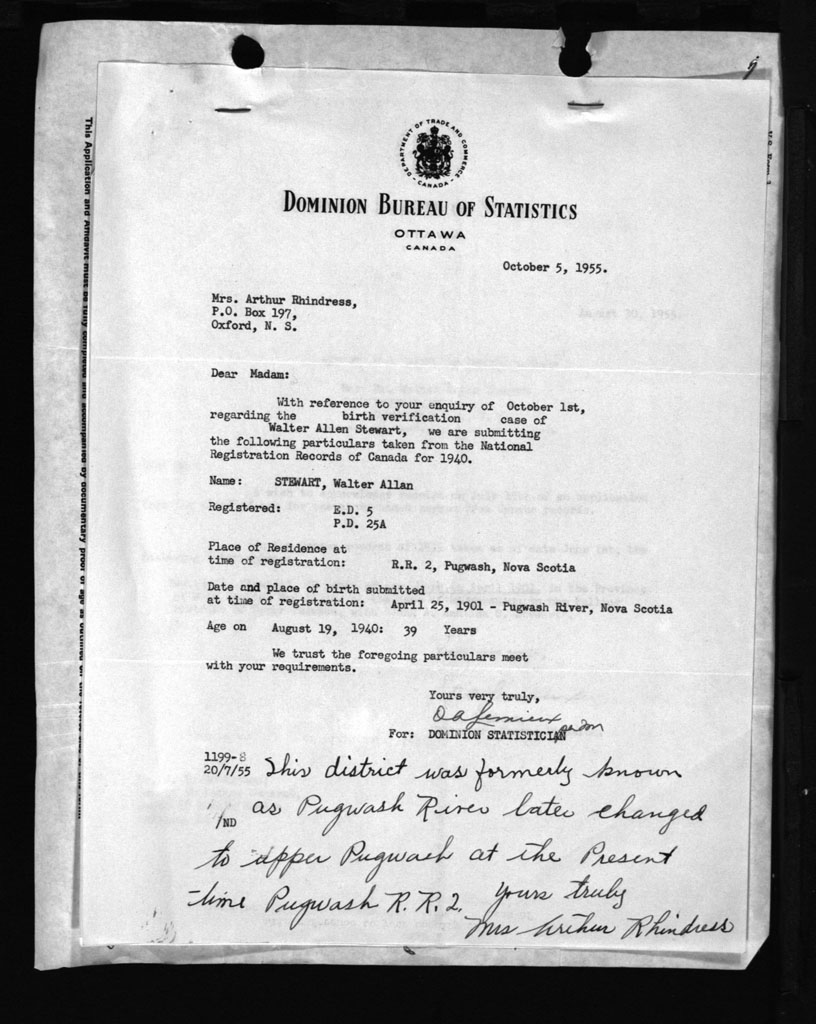 DEPARTMENT OF TRADE AND COMMERCE
CANADA
DOMINION BUREAU OF STATISTICS
OTTAWA
CANADA
October 5, 1955.
Mrs. Arthur Rhindress,
P.O. Box 197,
Oxford, N. S.
Dear Madam:
With reference to your enquiry of October 1st,
regarding the birth verification case of
Walter Allen Stewart, we are submitting
the following particulars taken from the National
Registration Records of Canada for 1940.
Name: STEWART, Walter Allan
Registered: E.D. 5
P.D. 25A
Place of Residence at
time of registration: R.R. 2, Pugwash, Nova Scotia
Date and place of birth submitted
at time of registration: April 25, 1901 - Pugwash River, Nova Scotia
Age on August 19, 1940: 39 Years
We trust the foregoing particulars meet
with your requirements.
Yours very truly,
O A Lemieux
For: DOMINION STATISTICIAN
1199-8
20/7/55
/ND
This district was formerly known
as Pugwash River later changed
to upper Pugwash at the Present
time Pugwash R.R.2. Yours truly
Mrs Arthur Rhindress
This Application and Affidavit must be fully completed and accompanied by documentary proof of age as outlined on the